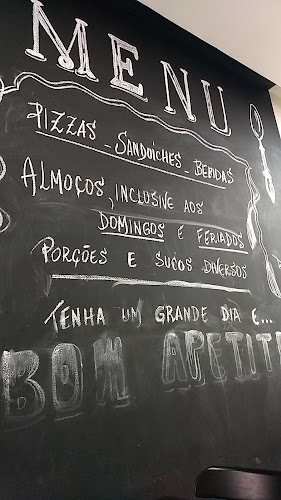 MENU
PIZZAS - SANDUICHES - BEBIDAS
ALMOÇOS, INCLUSIVE AOS
DOMINGOS E FERIADOS
PORÇÕES E SUCOS DIVERSOS
TENHA UM GRANDE DIA E...
BOM APETITE